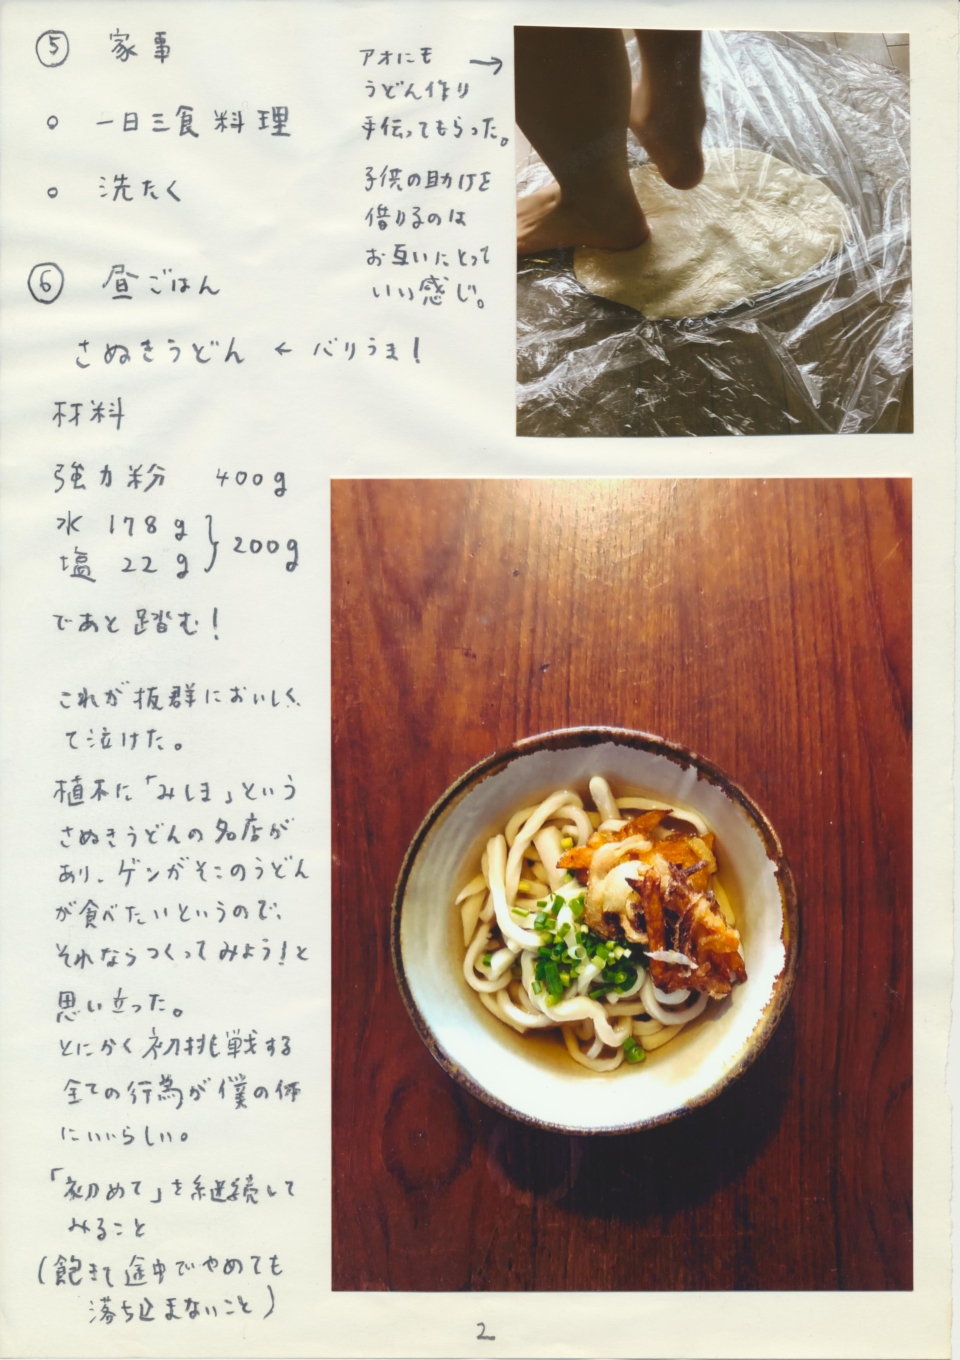 ⑤ 家事
○ 一日三食料理
○ 洗たく
アオにも →
うどん作り
手伝ってもらった。
子供の助けを
借りるのは
お互いにとって
いい感じ。
⑥ 昼ごはん
さぬきうどん ← バリうま!
材料
強力粉 400g
水 178g
塩 22g } 200g
であと踏む!
これが抜群においしく
て泣けた。
植木に「みしま」という
さぬきうどんの名店が
あり、ゲンがそこのうどん
が食べたいというので、
それならつくってみよう!と
思い立った。
とにかく初挑戦する
全ての行為が僕の体
にいいらしい。
「初めて」を継続して
みること
(飽きて途中でやめても
落ち込まないこと)
2